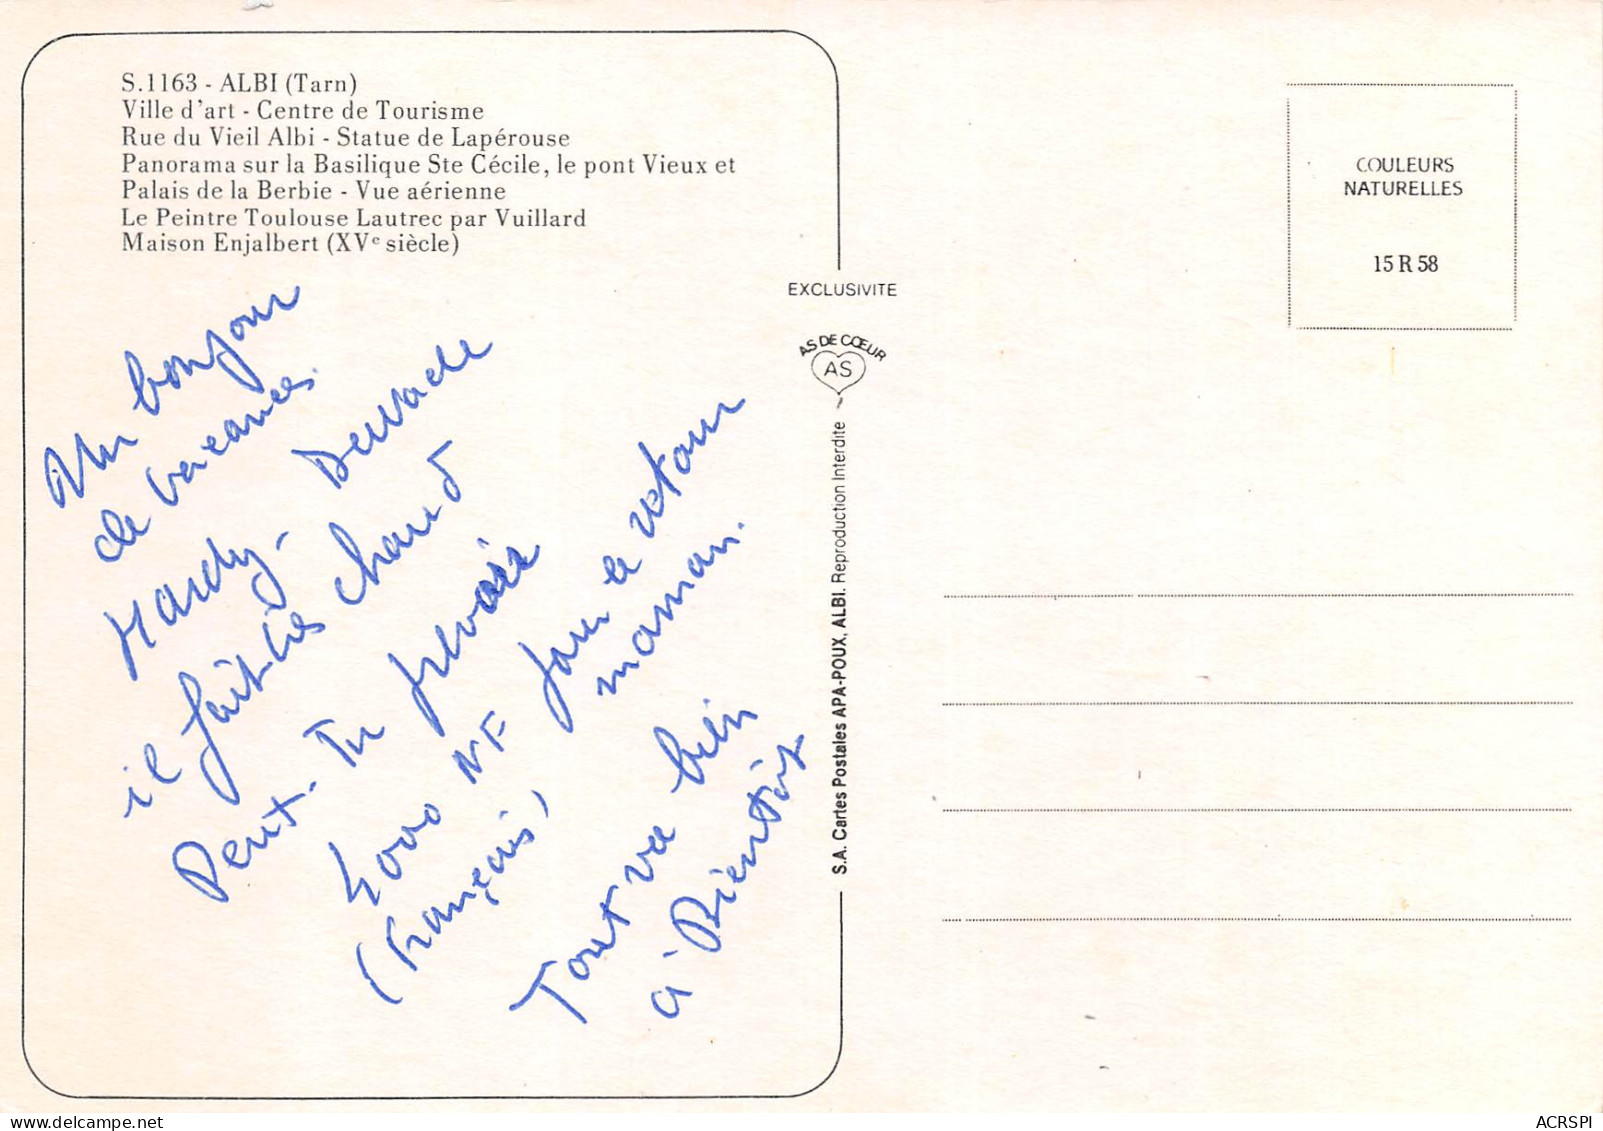 S.1163 - ALBI (Tarn)
Ville d'art - Centre de Tourisme
Rue du Vieil Albi - Statue de Lapérouse
Panorama sur la Basilique Ste Cécile, le pont Vieux et
Palais de la Berbie - Vue aérienne
Le Peintre Toulouse Lautrec par Vuillard
Maison Enjalbert (XVe siècle)
Un bonjour
de vacances.
Mardy -
il fait très chaud
Peux - Tu prévoir
NF pour le retour
(Français) maman.
Tout va bien
à Bientôt
EXCLUSIVITE
AS DE CŒUR
AS
S.A. Cartes Postales APA-POUX, ALBI. Reproduction Interdite
COULEURS
NATURELLES
15 R 58
ACRSPI